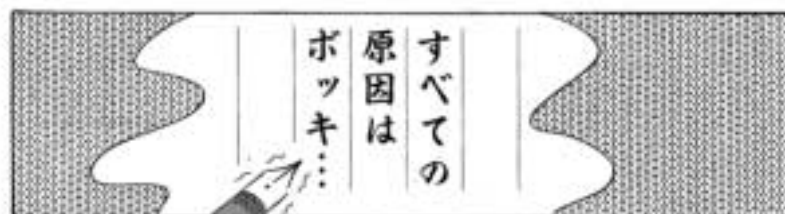 すべての
原因は
ボッキ…